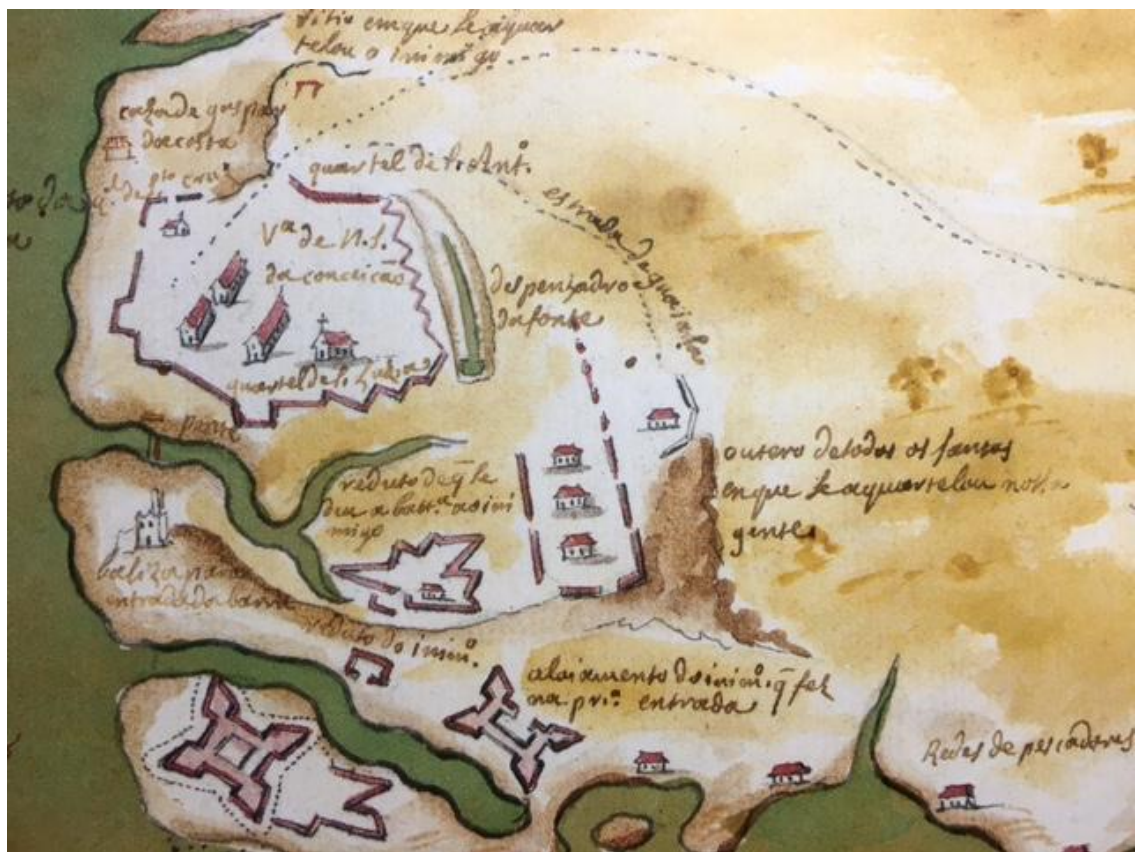 sitio em que se aquar
telou o inimigo
caza de gaspar
dacosta
quartel de S. Ant.º
estrada de
V.ª de N. S.
da conceicaõ
despenhadro
da fonte
quartel de S.
ponte
reduto de q̃ se
deu a bat.ª ao ini
migo
outero de todos os santos
en que se aquartelou nos.ª
gente
baliza para
entrada da barra
reduto do inim.º
aloiamento do inim.º q̃ fes
na pri.ª entrada
Redes de pescadores